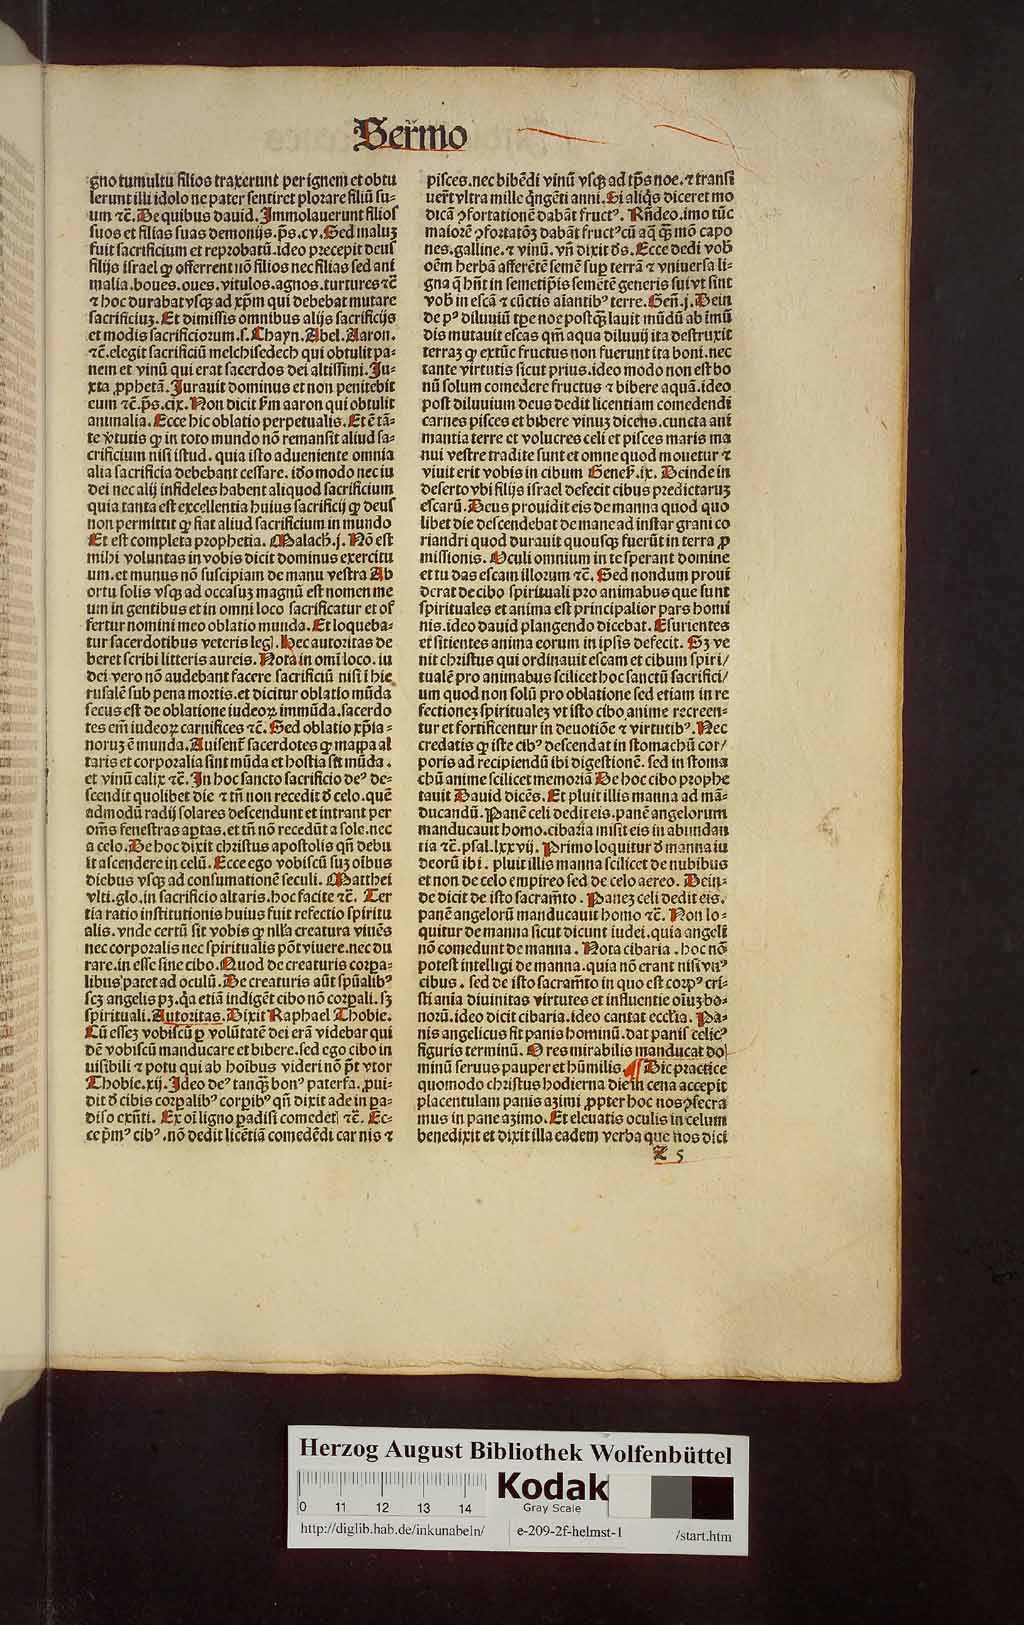 Sermo
gno tumultu filios traxerunt per ignem et obtu
lerunt illi idolo ne pater sentiret plorare filiū su⸗
um ⁊c̄. De quibus dauid. Immolauerunt filios
suos et filias suas demonijs. p̄s. cv. Sed maluꝫ
fuit sacrificium et reprobatū. ideo precepit deus
filijs israel ꝙ offerrent nō filios nec filias sed ani
malia. boues. oues. vitulos. agnos. turtures ⁊c̄
⁊ hoc durabat vsqꝫ ad xp̄m qui debebat mutare
sacrificiuꝫ. Et dimissis omnibus alijs sacrificijs
et modis sacrificiorum. s. Chayn. Abel. Aaron.
⁊c̄. elegit sacrificiū melchisedech qui obtulit pa⸗
nem et vinū qui erat sacerdos dei altissimi. Iu⸗
xta ꝓphetā. Iurauit dominus et non penitebit
eum ⁊c̄. p̄s. cix. Non dicit km̄ aaron qui obtulit
animalia. Ecce hic oblatio perpetualis. Et ē tā⸗
te v̄tutis ꝙ in toto mundo nō remansit aliud sa⸗
crificium nisi istud. quia isto adueniente omnia
alia sacrificia debebant cessare. iđo modo nec iu
dei nec alij infideles habent aliquod sacrificium
quia tanta est excellentia huius sacrificij ꝙ deus
non permittit ꝙ fiat aliud sacrificium in mundo
Et est completa prophetia. Malach̄. j. Nō est
mihi voluntas in vobis dicit dominus exercitu
um. et munus nō suscipiam de manu vestra Ab
ortu solis vsqꝫ ad occasuꝫ magnū est nomen me
um in gentibus et in omni loco sacrificatur et of
fertur nomini meo oblatio munda. Et loqueba⸗
tur sacerdotibus veteris legꝭ. Hec autoritas de
beret scribi litteris aureis. Nota in om̄i loco. iu
dei vero nō audebant facere sacrificiū nisi ī hie
rusalē sub pena mortis. et dicitur oblatio mūda
secus est de oblatione iudeoꝝ immūda. sacerdo
tes em̄ iudeoꝝ carnifices ⁊c̄. Sed oblatio xp̄ia⸗
noruꝫ ē munda. Auisent̄ sacerdotes ꝙ mappa al
taris et corporalia sint mūda et hostia sit mūda.
et vinū calix ⁊c̄. In hoc sancto sacrificio deꝰ de⸗
scendit quolibet die ⁊ tn̄ non recedit đ celo. quē
admodū radij solares descendunt et intrant per
om̄s fenestras aꝑtas. et tn̄ nō recedūt a sole. nec
a celo. De hoc dixit christus apostolis qn̄ debu
it ascendere in celū. Ecce ego vobiscū suꝫ oībus
diebus vsqꝫ ad consumationē seculi. Matthei
vlti. glo. in sacrificio altaris. hoc facite ⁊c̄. Ter
tia ratio institutionis huius fuit refectio spiritu
alis. vnde certū sit vobis ꝙ nlla creatura viuēs
nec corporalis nec spiritualis pōt viuere. nec du
rare. in esse sine cibo. Quod de creaturis corpa⸗
libus patet ad oculū. De creaturis aūt spūalibꝰ
scꝫ angelis pꝫ. q̄a etiā indigēt cibo nō corpali. sꝫ
spirituali. Autoritas. Dixit Raphael Thobie.
Cū esseꝫ vobiscū ꝑ volūtatē dei erā videbar qui
dē vobiscū manducare et bibere. sed ego cibo in
uisibili ⁊ potu qui ab hoībus videri nō pt̄ vtor
Thobie. xij. Ideo deꝰ tanqꝫ bonꝰ paterfa. ꝓui⸗
dit đ cibis corꝑalibꝰ corꝑibꝰ qn̄ dixit ade in ꝑa⸗
diso exn̄ti. Ex oī ligno ꝑadisi comedetꝭ ⁊c̄. Ec⸗
ce p̄mꝰ cibꝰ. nō dedit licētiā comedēdi carnis ⁊
pisces. nec bibēdi vinū vsqꝫ ad tp̄s noe. ⁊ transi
uer̄t vltra mille q̄ngēti anni. Si aliq̄s diceret mo
dicā ꝯfortationē dabāt fructꝰ. Rn̄deo. imo tūc
maiorē ꝯfortatōꝫ dabāt fructꝰ cū aq̄ qꝫ mō capo
nes. galline. ⁊ vinū. vn̄ dixit d̄s. Ecce dedi vob̄
oēm herbā afferētē semē suꝑ terrā ⁊ vniuersa li⸗
gna q̄ hn̄t in semetip̄is semētē generis sui vt sint
vob̄ in escā ⁊ cūctis aīantibꝰ terre. Gen̄. j. Dein
de pꝰ diluuiū tp̄e noe postqꝫ lauit mūdū ab īmū
dis mutauit escas qm̄ aqua diluuij ita destruxit
terraꝫ ꝙ extūc fructus non fuerunt ita boni. nec
tante virtutis sicut prius. ideo modo non est bo
nū solum comedere fructus ⁊ bibere aquā. ideo
post diluuium deus dedit licentiam comedendi
carnes pisces et bibere vinuꝫ dicens. cuncta ani
mantia terre et volucres celi et pisces maris ma
nui vestre tradite sunt et omne quod mouetur ⁊
viuit erit vobis in cibum Genes̄. ix. Deinde in
deserto vbi filijs israel defecit cibus predictaruꝫ
escarū. Deus prouidit eis de manna quod quo
libet die descendebat de mane ad instar grani co
riandri quod durauit quousqꝫ fuerūt in terra ꝓ
missionis. Oculi omnium in te sperant domine
et tu das escam illorum ⁊c̄. Sed nondum proui
derat de cibo spirituali pro animabus que sunt
spirituales et anima est principalior pars homi
nis. ideo dauid plangendo dicebat. Esurientes
et sitientes anima eorum in ipsis defecit. Sꝫ ve
nit christus qui ordinauit escam et cibum spiri/
tualē pro animabus scilicet hoc sanctū sacrifici/
um quod non solū pro oblatione sed etiam in re
fectioneꝫ spiritualeꝫ vt isto cibo anime recreen⸗
tur et fortificentur in deuotiōe ⁊ virtutibꝰ. Nec
credatis ꝙ iste cibꝰ descendat in stomachū cor/
poris ad recipiendū ibi digestionē. sed in stoma
chū anime scilicet memoriā De hoc cibo prophe
tauit Dauid dicēs. Et pluit illis manna ad mā⸗
ducandū. Panē celi dedit eis. panē angelorum
manducauit homo. cibaria misit eis in abundan
tia ⁊c̄. psal. lxxvij. Primo loquitur đ manna iu
deorū ibi. pluit illis manna scilicet de nubibus
et non de celo empireo sed de celo aereo. Dein⸗
de dicit de isto sacram̄to. Paneꝫ celi dedit eis.
panē angelorū manducauit homo ⁊c̄. Non lo⸗
quitur de manna sicut dicunt iudei. quia angeli
nō comedunt de manna. Nota cibaria. hoc nō
potest intelligi de manna. quia nō erant nisi vnꝰ
cibus. sed de isto sacram̄to in quo est corpꝰ cri⸗
sti anīa diuinitas virtutes et influentie oīuꝫ bo⸗
norū. ideo dicit cibaria. ideo cantat ecclīa. Pa⸗
nis angelicus fit panis hominū. dat panis celicꝰ
figuris terminū. O res mirabilis manducat do
minū seruus pauper et hūmilis. ¶ Dic practice
quomodo christus hodierna die in cena accepit
placentulam panis azimi ꝓpter hoc nos ꝯsecra
mus in pane azimo. Et eleuatis oculis in celum
benedixit et dixit illa eadem verba que nos dici
Z 5
Herzog August Bibliothek Wolfenbüttel
0 11 12 13 14
Kodak
Gray Scale
http://diglib.hab.de/inkunabeln/ e-209-2f-helmst-1 /start.htm